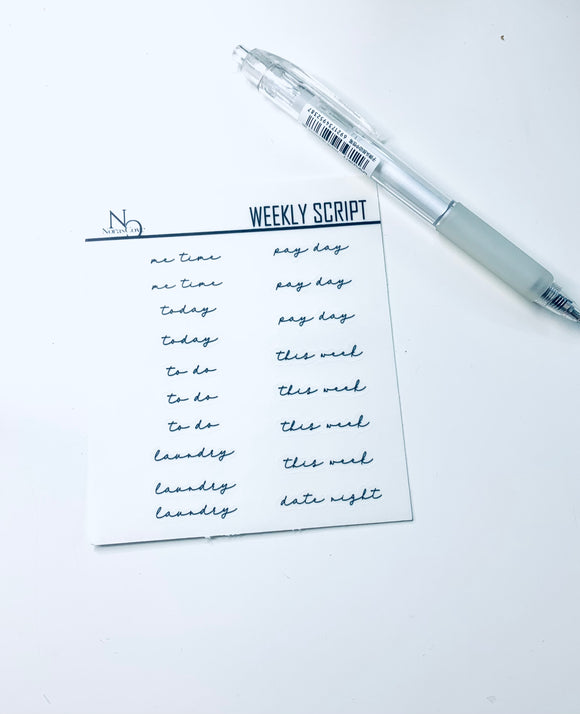 WEEKLY SCRIPT
NC
Noras Cove
me time
me time
today
today
to do
to do
to do
laundry
laundry
laundry
pay day
pay day
pay day
this week
this week
this week
this week
date night